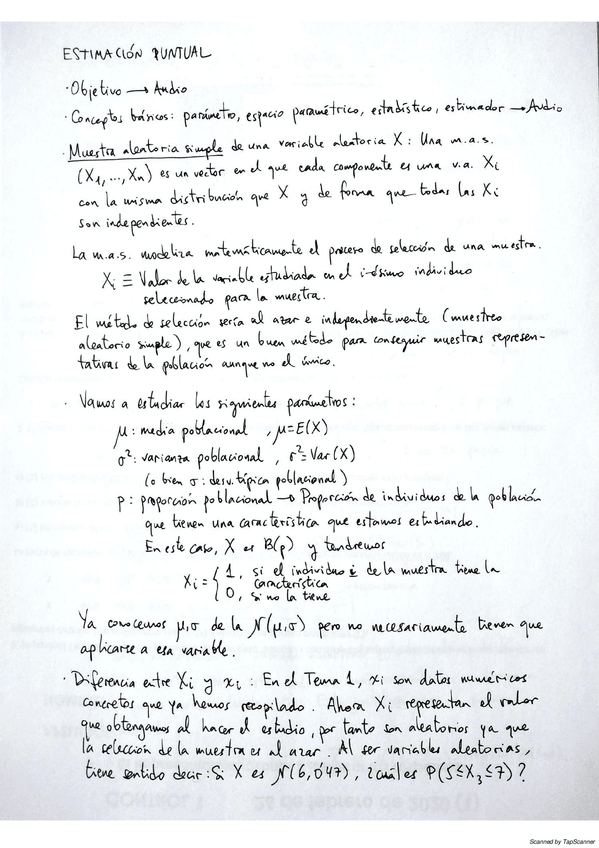 ESTIMACIÓN PUNTUAL
· Objetivo → Audio
· Conceptos básicos: parámetro, espacio paramétrico, estadístico, estimador → Audio
· Muestra aleatoria simple de una variable aleatoria X: Una m.a.s.
(X₁, ..., Xn) es un vector en el que cada componente es una v.a. Xi
con la misma distribución que X y de forma que todas las Xi
son independientes.
La m.a.s. modeliza matemáticamente el proceso de selección de una muestra.
Xi ≡ Valor de la variable estudiada en el i-ésimo individuo
seleccionado para la muestra.
El método de selección sería al azar e independientemente (muestreo
aleatorio simple), que es un buen método para conseguir muestras represen-
tativas de la población aunque no el único.
· Vamos a estudiar los siguientes parámetros:
μ: media poblacional, μ=E(X)
σ²: varianza poblacional, σ²=Var(X)
(o bien σ: desv. típica poblacional)
p: proporción poblacional → Proporción de individuos de la población
que tienen una característica que estamos estudiando.
En este caso, X es B(p) y tendremos
Xi = { 1, si el individuo i de la muestra tiene la
característica
0, si no la tiene
Ya conocemos μ, σ de la N(μ,σ) pero no necesariamente tienen que
aplicarse a esa variable.
· Diferencia entre Xi y xi: En el Tema 1, xi son datos numéricos
concretos que ya hemos recopilado. Ahora Xi representan el valor
que obtengamos al hacer el estudio, por tanto son aleatorios ya que
la selección de la muestra es al azar. Al ser variables aleatorias,
tiene sentido decir: Si X es N(6, 0'47), ¿cuál es P(5≤X₃≤7)?
Scanned by TapScanner